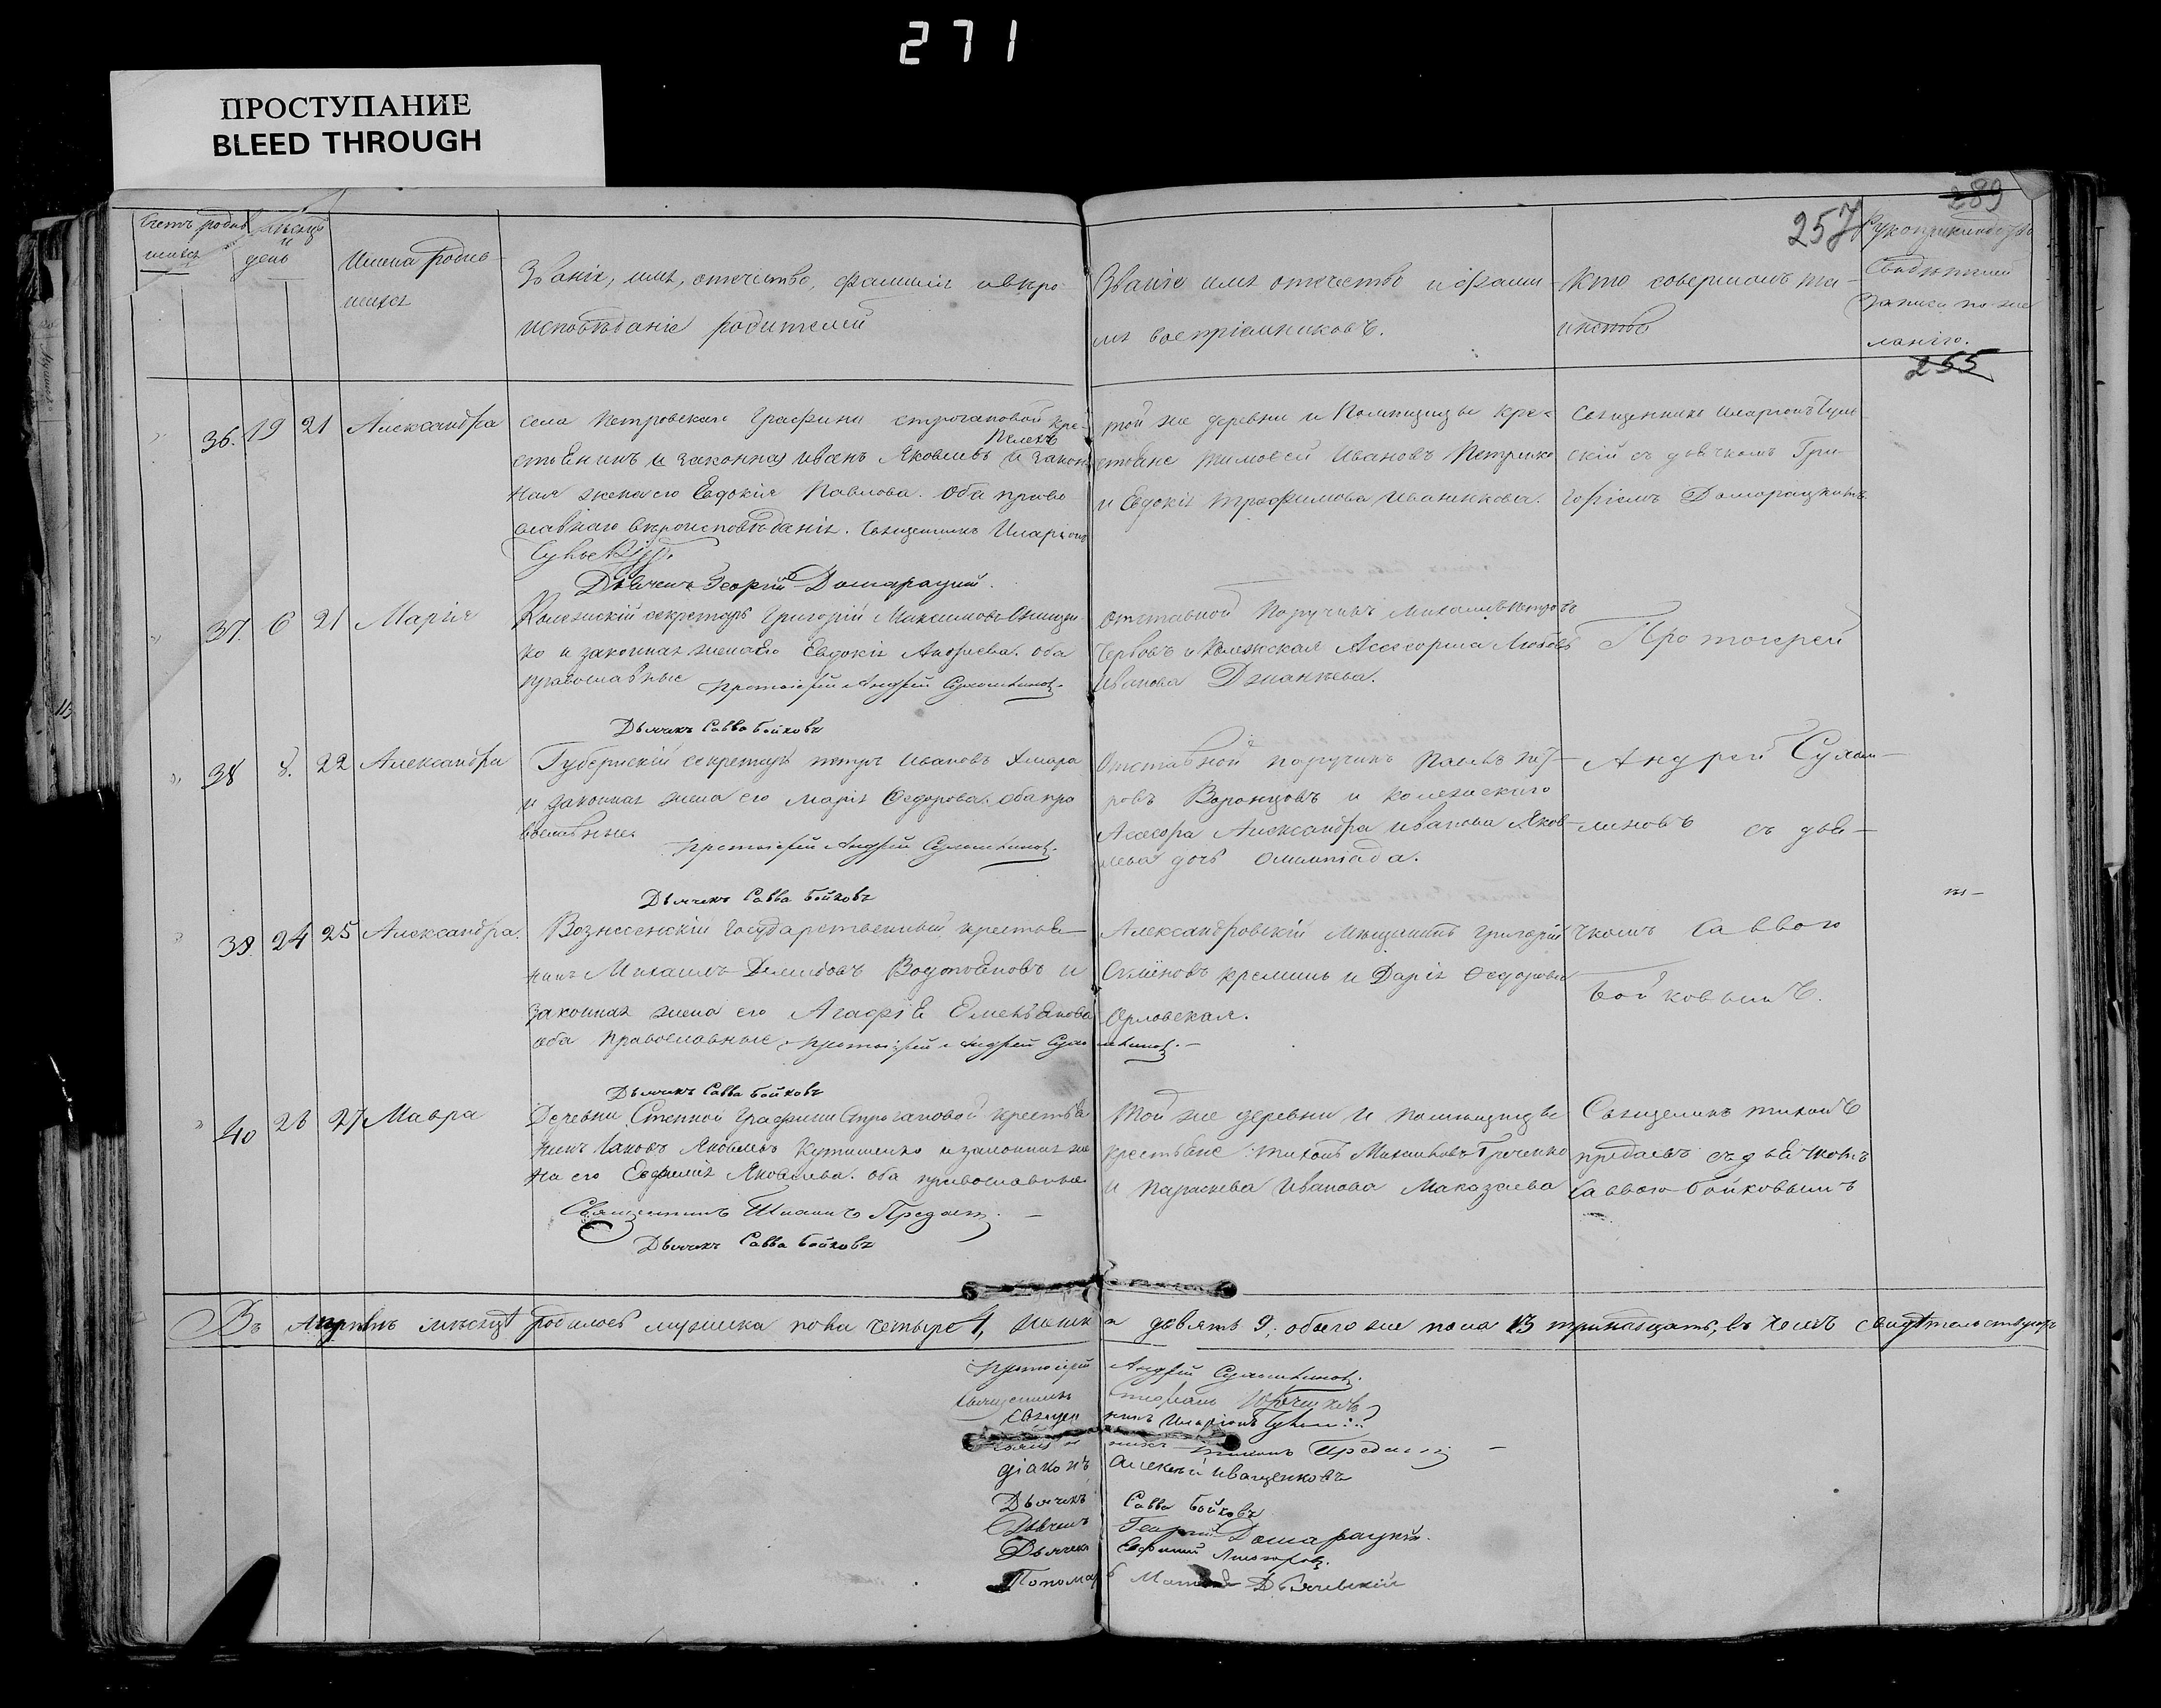 271
ПРОСТУПАНИЕ
BLEED THROUGH
289
257
Счетъ родив
шихся
Мѣсяцъ
и
день
Имена родив
шихся
Званіе, имя, отечество, фамилія и вѣро-
исповѣданіе родителей
Званіе имя отечество и фами
лія воспріемниковъ.
Кто совершалъ та-
инство
Рукоприкладство
Свидѣтелей
записи по же
ланію.
255
36. 19 21 Александра
села Петровскаго Графини Строгановой кре-
стьянинъ Иванъ Яковлевъ и закон
ная жена его Евдокія Павлова. Оба право
славнаго вѣроисповѣданія. Священникъ Иларіонъ
Дьячекъ Георгій Домарацкій.
той же деревни и Помѣщицы кре-
стьяне Тимофей Ивановъ Петренко
и Евдокія Трофимова Иваненкова.
Священникъ Иларіонъ
скій съ дьячкомъ Гри-
горіемъ Домарацкимъ
37. 6 21 Марія
Колежскій секретарь Григорій Максимовъ Онищен
ко и законная жена его Евдокія Андреева. оба
православные Протоіерей Андрей Сухомлиновъ.
Дьячекъ Савва Бойковъ
Отставной Поручикъ Михаилъ Петровъ
Червовъ и Колежская Асесорша Любовь
Иванова Джанѣева.
Протоіерей
38 8. 22 Александра
Губернскій секретарь Петръ Ивановъ Хмара
и законная жена его Марія Федорова. оба пра
вославные. Протоіерей Андрей Сухомлиновъ.
Дьячекъ Савва Бойковъ
Отставной поручикъ Павелъ Пет-
ровъ Воронцовъ и Колежскаго
Асесора Александра Иванова Яков-
лева дочь Олимпіада.
Андрей Сухом-
линовъ съ дья-
39. 24 25 Александра.
Вознесенскій Государственный крестья-
нинъ Михаилъ Демидовъ Водопьяновъ и
законная жена его Агафія Емельянова
оба православные. Протоіерей Андрей Сухомлиновъ.
Дьячекъ Савва Бойковъ
Александровскій Мѣщанинъ Григорій
Семеновъ Креминь и Дарія Федорова
Орловская.
чкомъ Саввою
Бойковымъ.
40 26 27 Мавра
Деревни Степной Графини Строгановой крестья
нинъ Іаковъ Яковлевъ Кутишенко и законная же
на его Евфимія Яковлева. оба православные.
Священникъ Тихонъ Предаевъ.
Дьячекъ Савва Бойковъ
Той же деревни и помѣщицы
крестьяне: Тихонъ Михайловъ Гроченко
и Параскева Иванова Маказаева
Священникъ Тихонъ
Предаевъ съ дьячкомъ
Саввою Бойковымъ
Въ Апрѣлѣ мѣсяцѣ родилось мужеска пола четыре 4, женска девять 9; обоего же пола 13 тринадцать, въ чемъ свидѣтельствуютъ
Протоіерей Андрей Сухомлиновъ.
Священникъ Стефанъ
Священникъ Иларіонъ
Священникъ Тихонъ Предаевъ
Діаконъ Алексѣй Иващенковъ
Дьячекъ Савва Бойковъ
Дьячекъ Георгій Домарацкій.
Дьячекъ Евфимій
Пономарь Матвей Дьячевскій